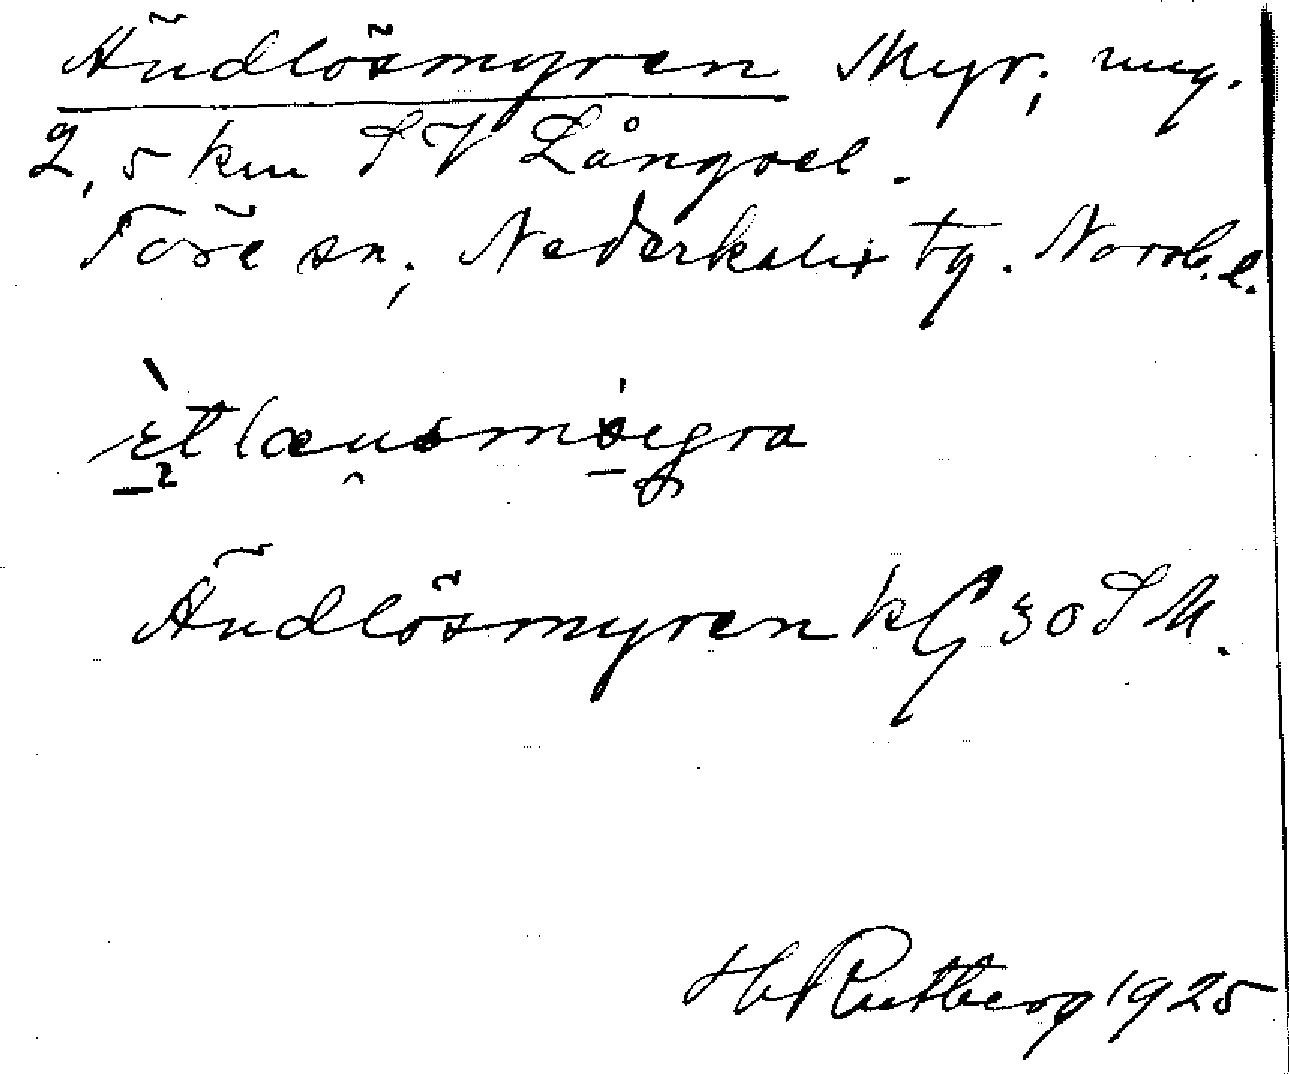 Ändlösmyren Myr, ung.
2,5 km SV Långsel.
Töre sn, Nederkalix tg. Norrb. l.
Ändlösmyren kG 30 SM.
H Rutberg 1925